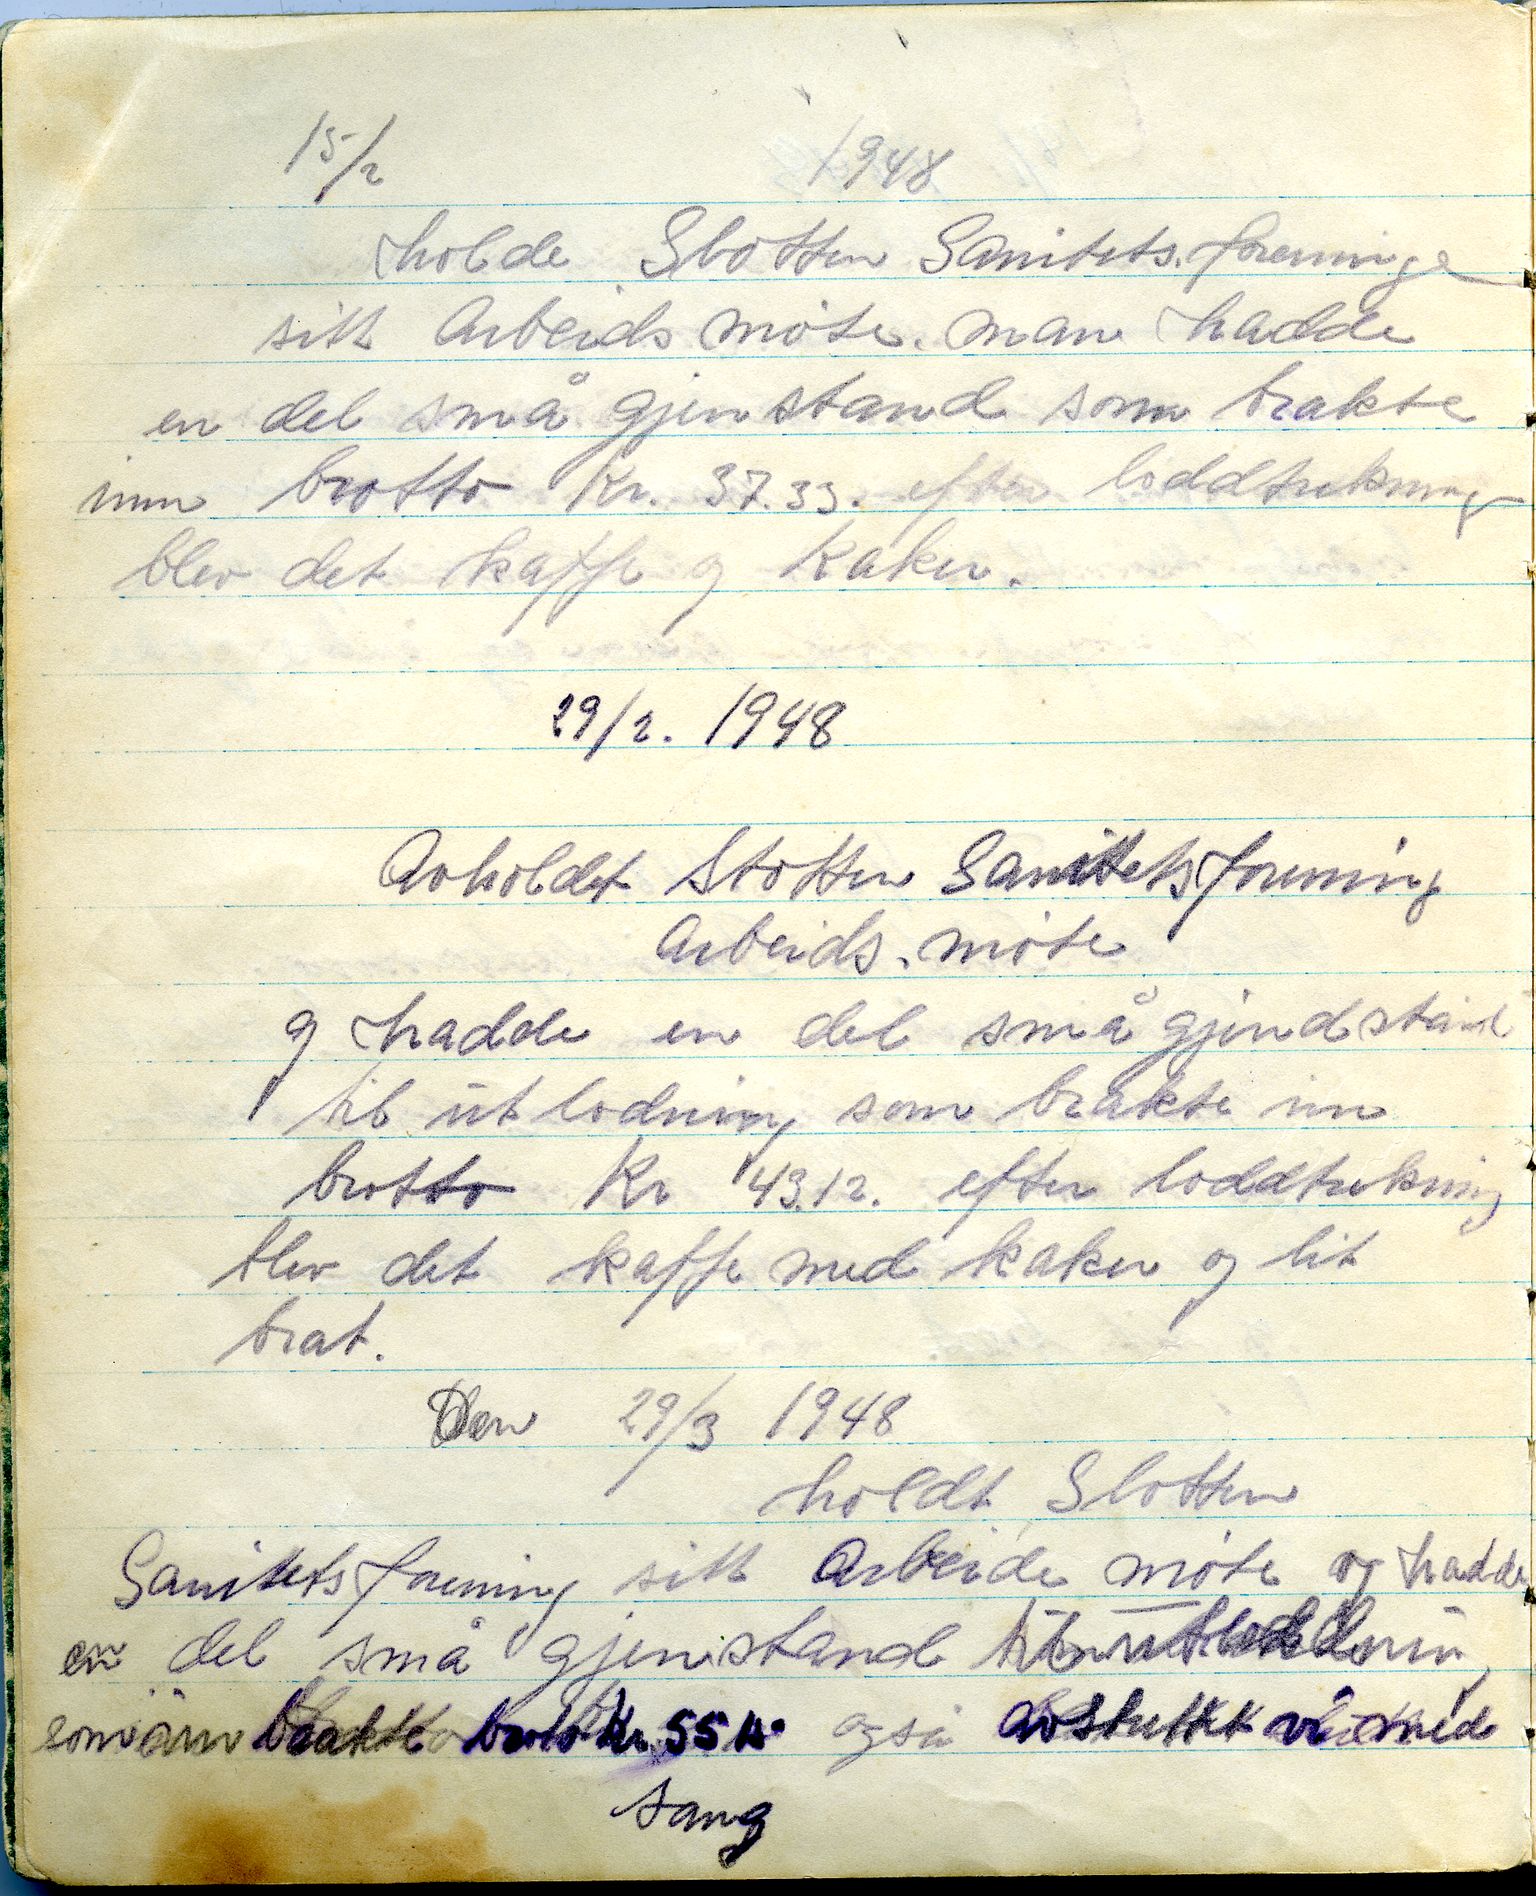 15/2 1948
holde Slotten Sanitets.forenninge
sitt Arbeids møte. man hadde
en del små gjenstand som brakte
inn brotto Kr. 37.33. efter loddtrekning
blev det kaffe og Kaker.
29/2. 1948
Avholdet Slotten Sanitetsforening
Arbeids.møte
og hadde en del små gjendstand
til utlodning som brakte inn
brotto Kr 43.12. efter loddtrekning
blev det kaffe med kaker og lit
brat.
Den 29/3 1948
holdt Slotten
Sanitetsforening sitt Arbeids møte og hadde
en del små gjenstand til utloddnin
som inn brakte broto Kr. 55 også avsluttet vi med
sang